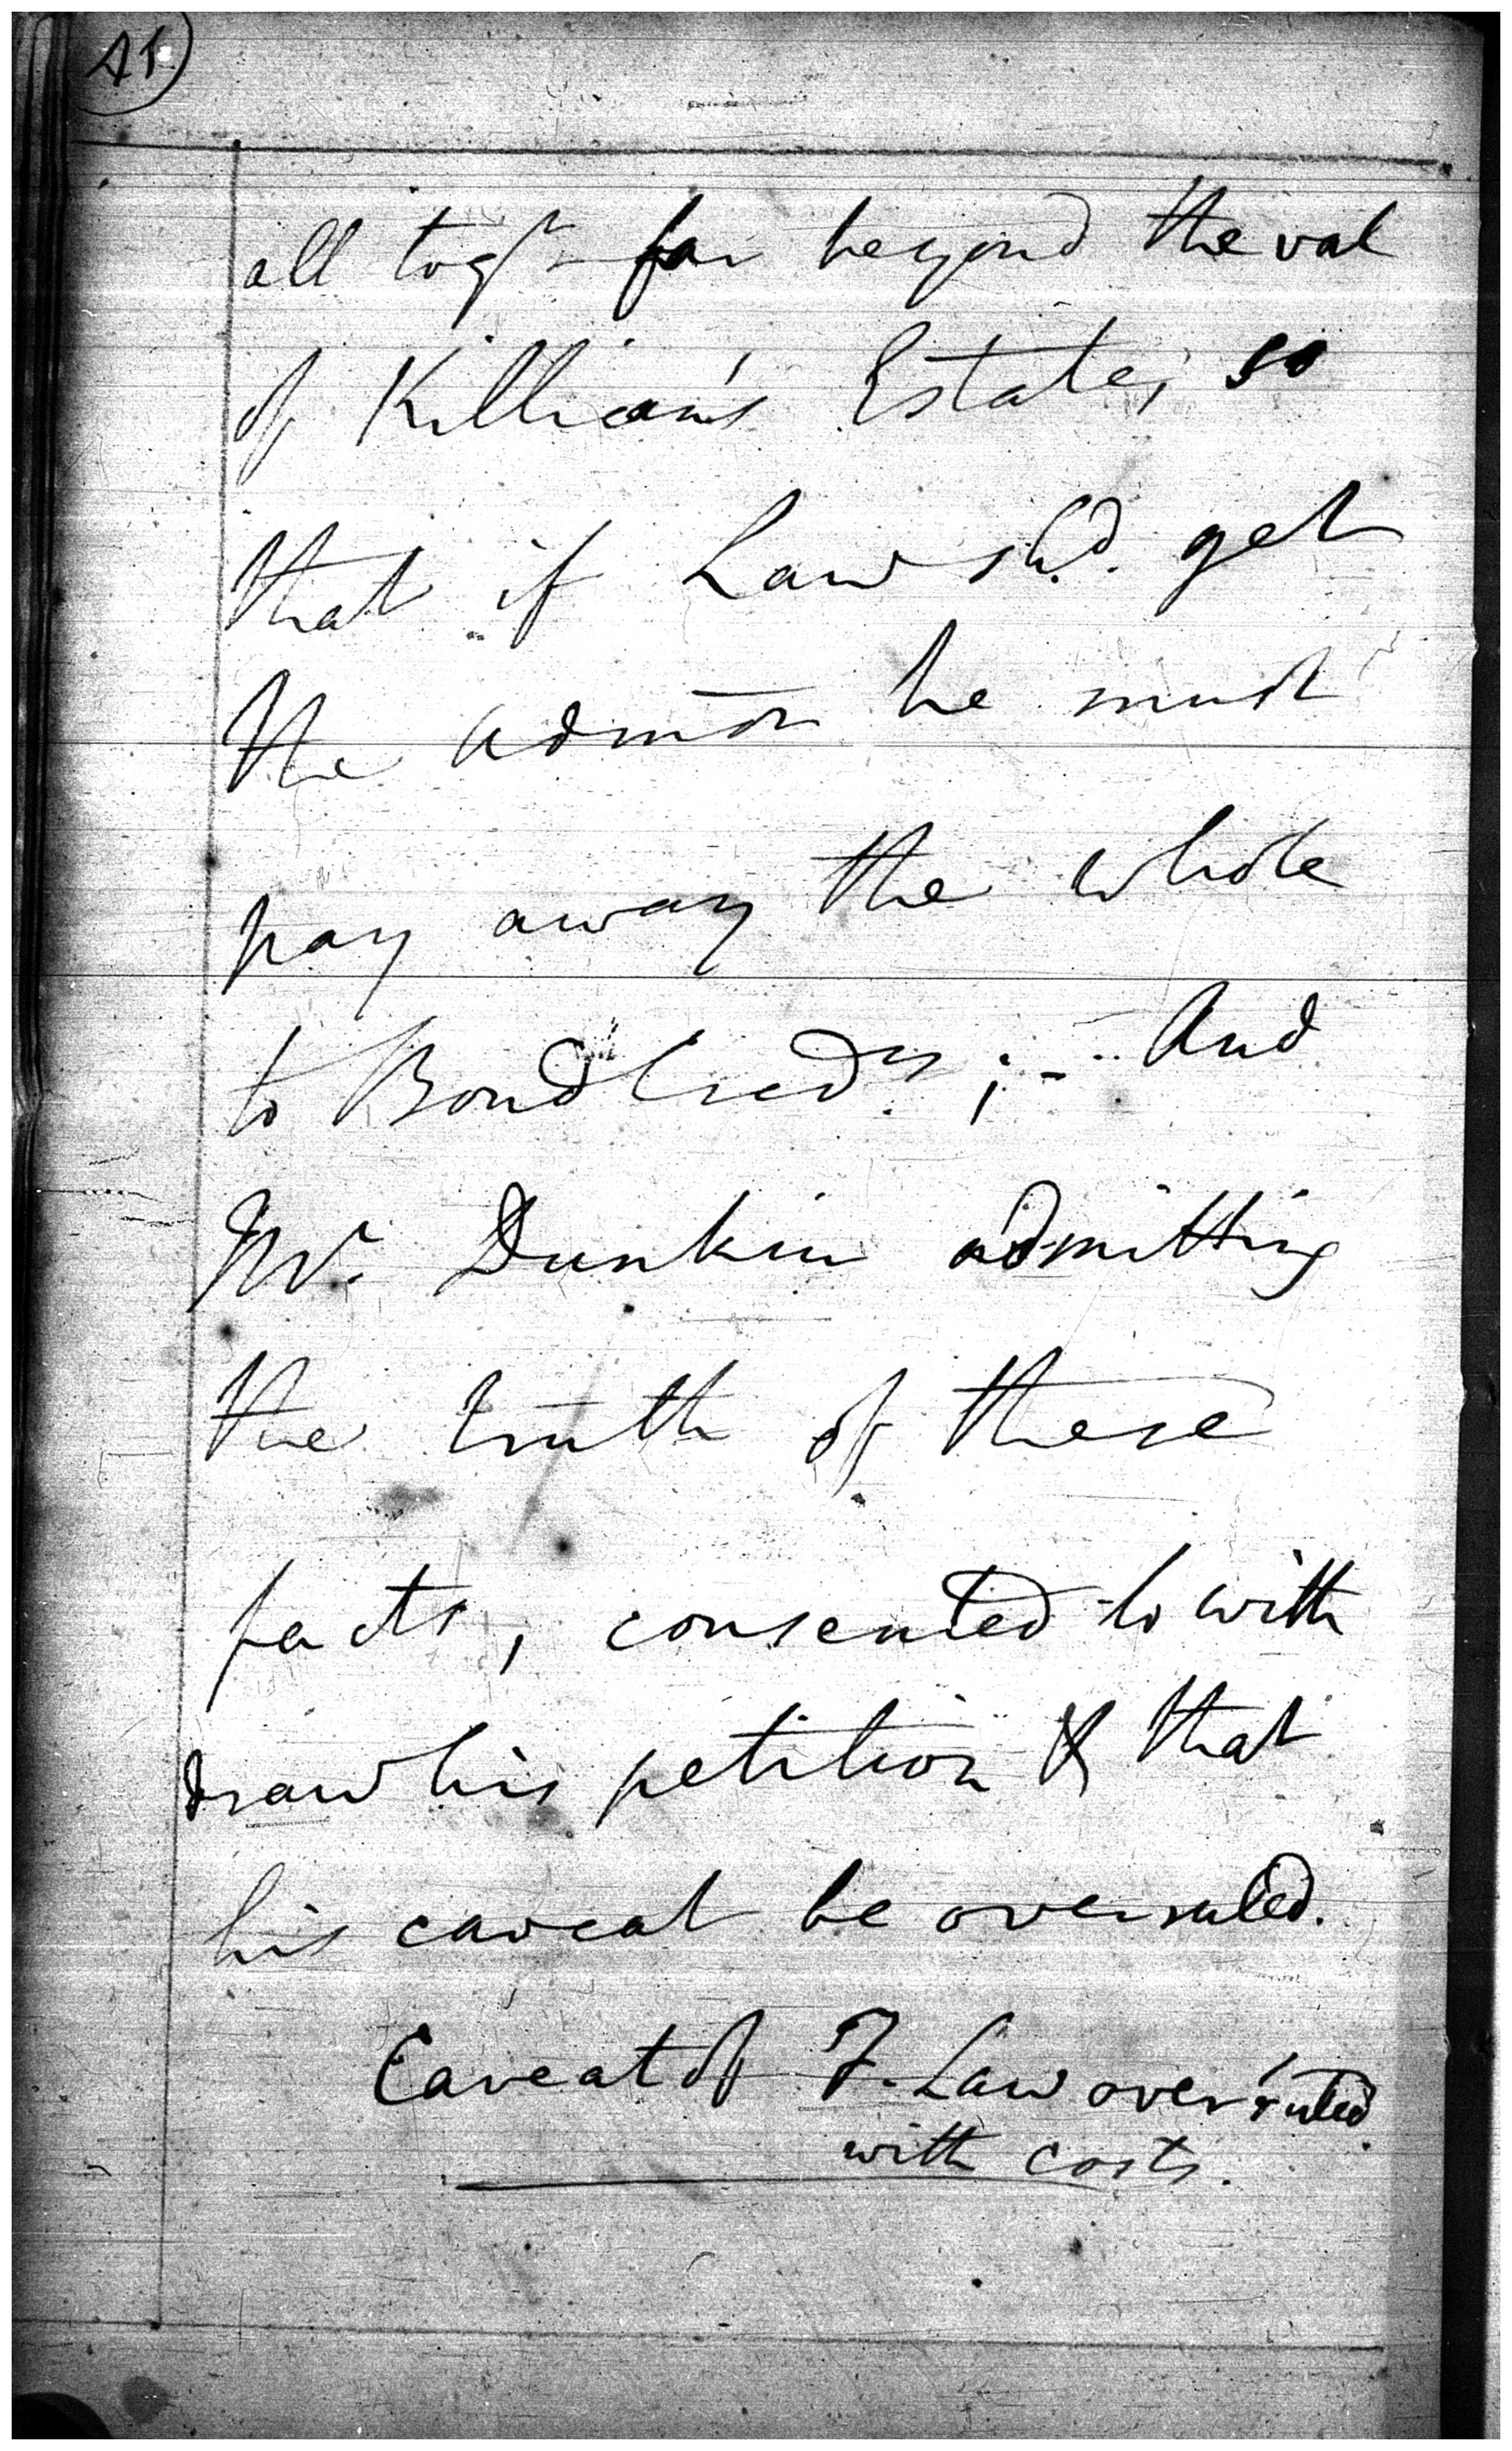 41
all togr far beyond the val
of Killican's Estate, so
that if Law shd. get
the admōn he must
pay away the whole
to Bond Credrs; - And
Mr. Dunkin admitting
the truth of these
facts, consented to with
draw his petition & that
his caveat be overruled.
Caveat of F. Law overruled
with costs.